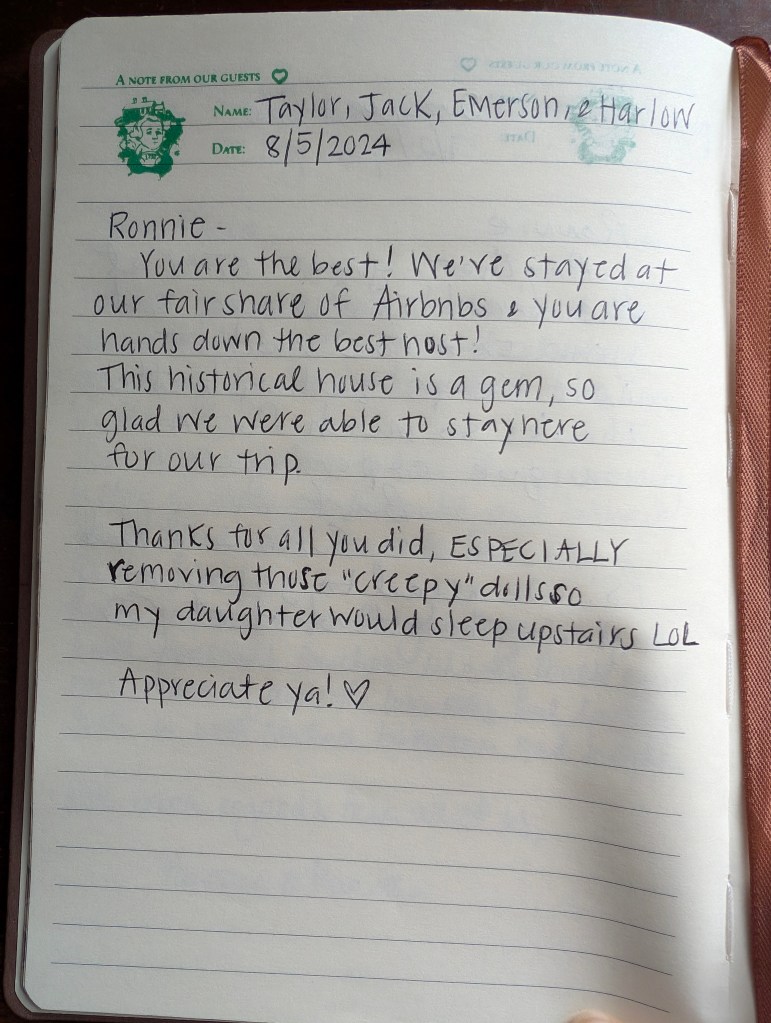 A NOTE FROM OUR GUESTS
NAME: Taylor, Jack, Emerson, & Harlow
DATE: 8/5/2024
Ronnie -
You are the best! We've stayed at
our fair share of Airbnbs & you are
hands down the best host!
This historical house is a gem, so
glad we were able to stay here
for our trip.
Thanks for all you did, ESPECIALLY
removing those "creepy" dolls so
my daughter would sleep upstairs LOL
Appreciate ya! ♡